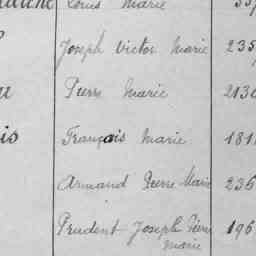 Louis Marie
Joseph Victor Marie 235
Pierre Marie 213
is François Marie 181
Armand Pierre Marie 235
Prudent Joseph Pierre 196
Marie